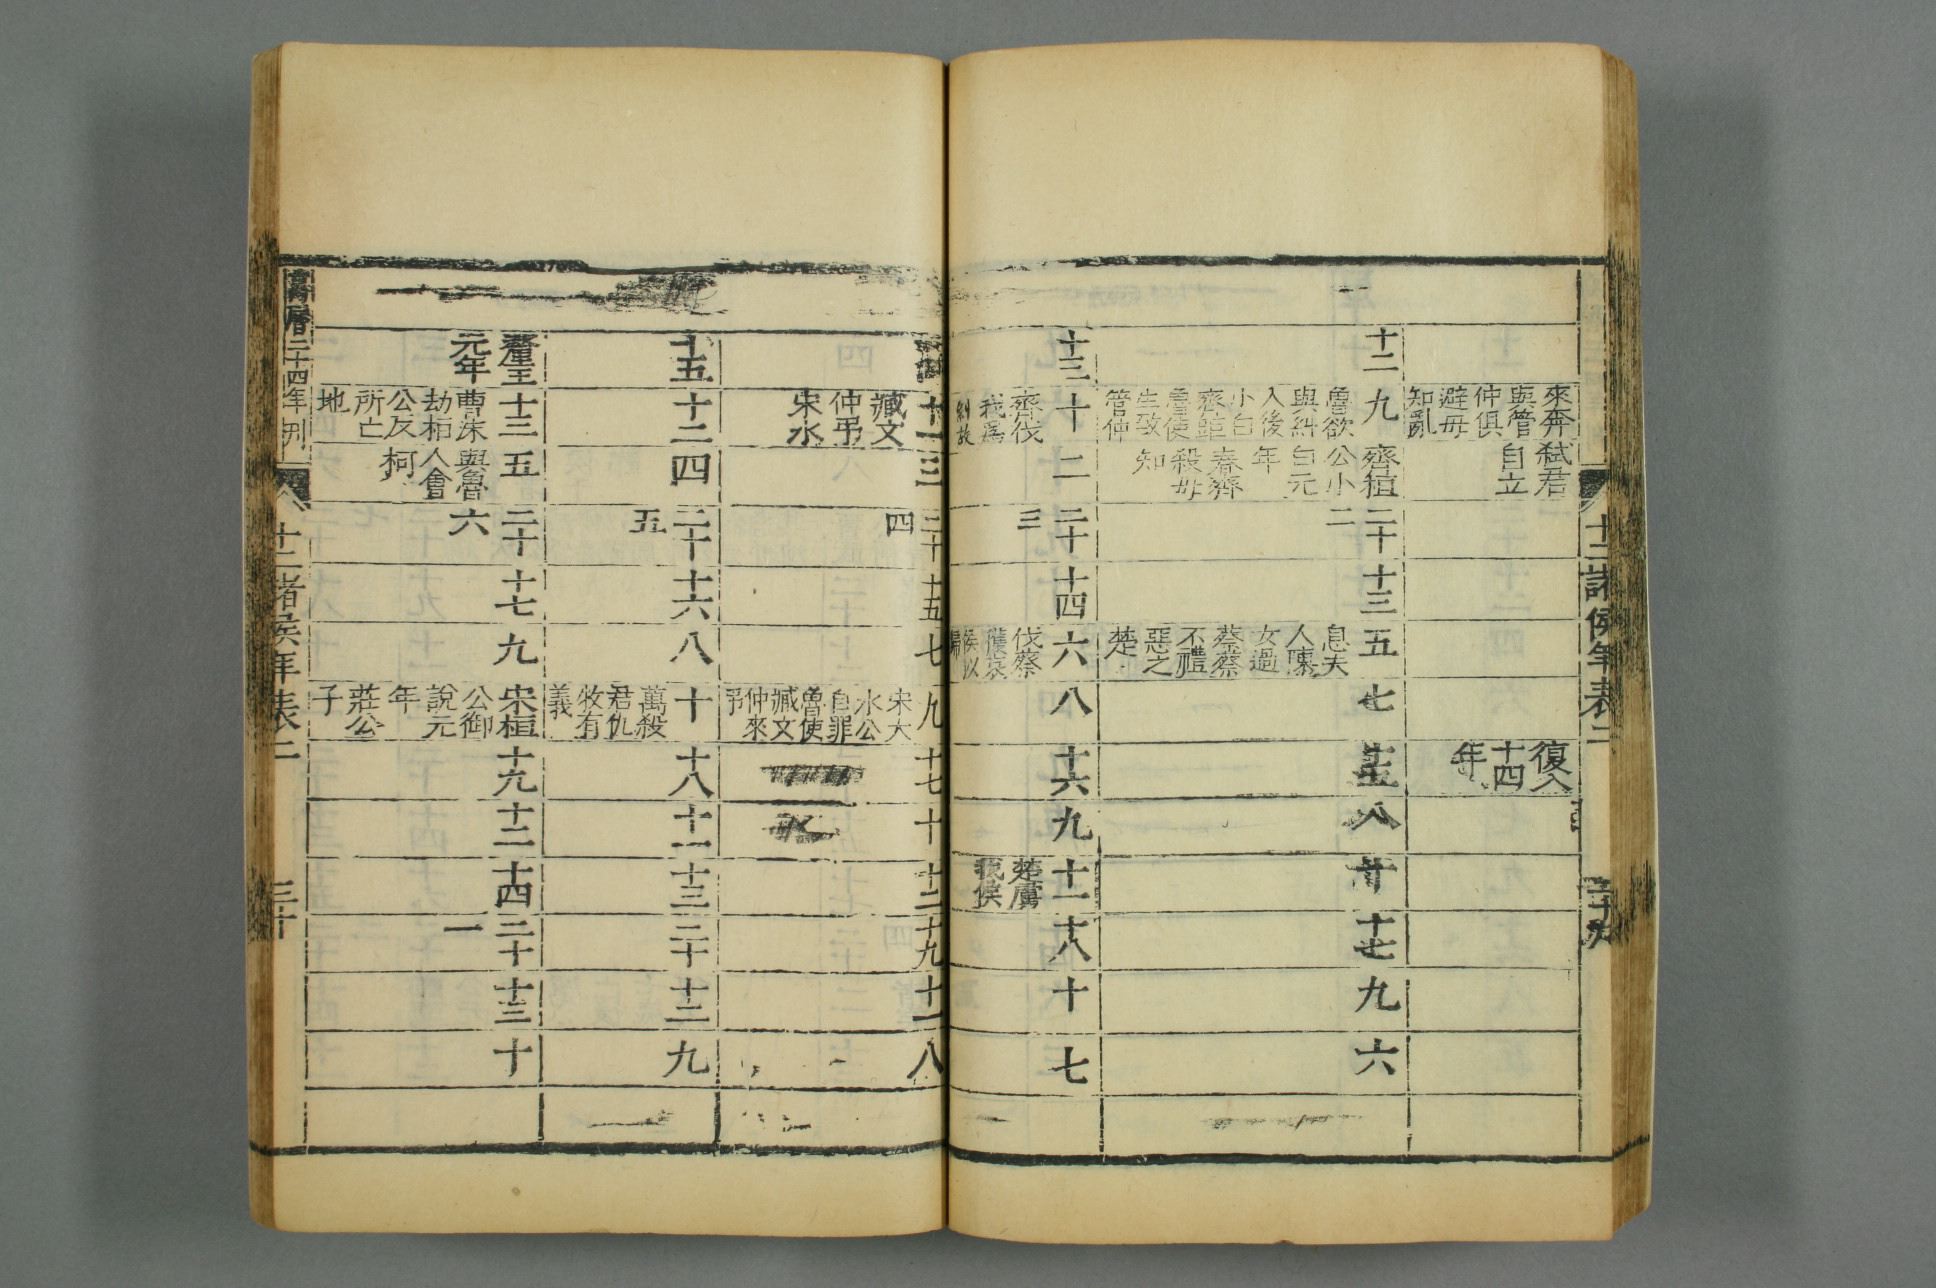 十二諸侯年表二
來奔
與管
仲俱
避毋
知亂
弑君
自立
復入
十四
年
十二
九
魯欲
與糾
入後
小白
齊距
魯使
生致
管仲
齊桓
公小
白元
年
春齊
殺毋
知
二十
二
十三
五
息夫
人陳
女過
蔡蔡
不禮
惡之
楚
七
八
十七
九
六
十三
十
齊伐
我爲
糾故
二
二十
三
十四
六
伐蔡
獲哀
侯以
歸
八
十六
九
十一
楚虜
我侯
十八
十
七
十四
十一
臧文
仲弔
宋水
三
二十
四
十五
七
九
宋大
水公
自罪
魯使
臧文
仲來
弔
十七
十
十二
十九
十一
八
十五
十二
四
二十
五
十六
八
十
萬殺
君仇
牧有
義
十八
十一
十三
二十
十二
九
釐王
元年
十三
曹沬
劫桓
公反
所亡
地
五
與魯
人會
柯
二十
六
十七
九
宋桓
公御
說元
年
莊公
子
十九
十二
十四
二十
一
十三
十
萬曆二十四年刊
十二諸侯年表二
三十